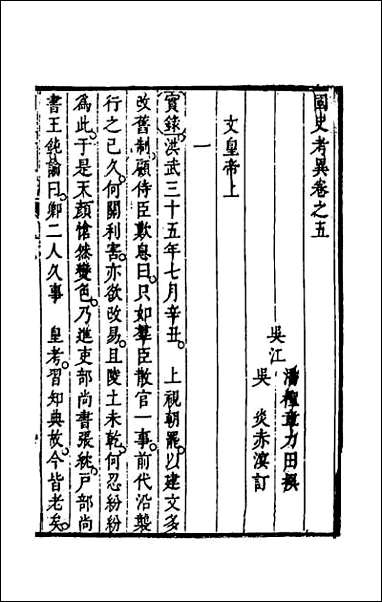 國史考異卷之五
吳江
潘檉章力田撰
吳炎赤溟訂
文皇帝上
一
實錄洪武三十五年七月辛丑上視朝罷以建文多
改舊制顧侍臣歎息曰只如羣臣散官一事前代沿襲
行之已久何關利害亦欲改易且陵土未乾何忍紛紛
為此于是天顏愴然變色乃進吏部尚書張紞戶部尚
書王鈍諭曰卿二人久事皇考習知典故今皆老矣